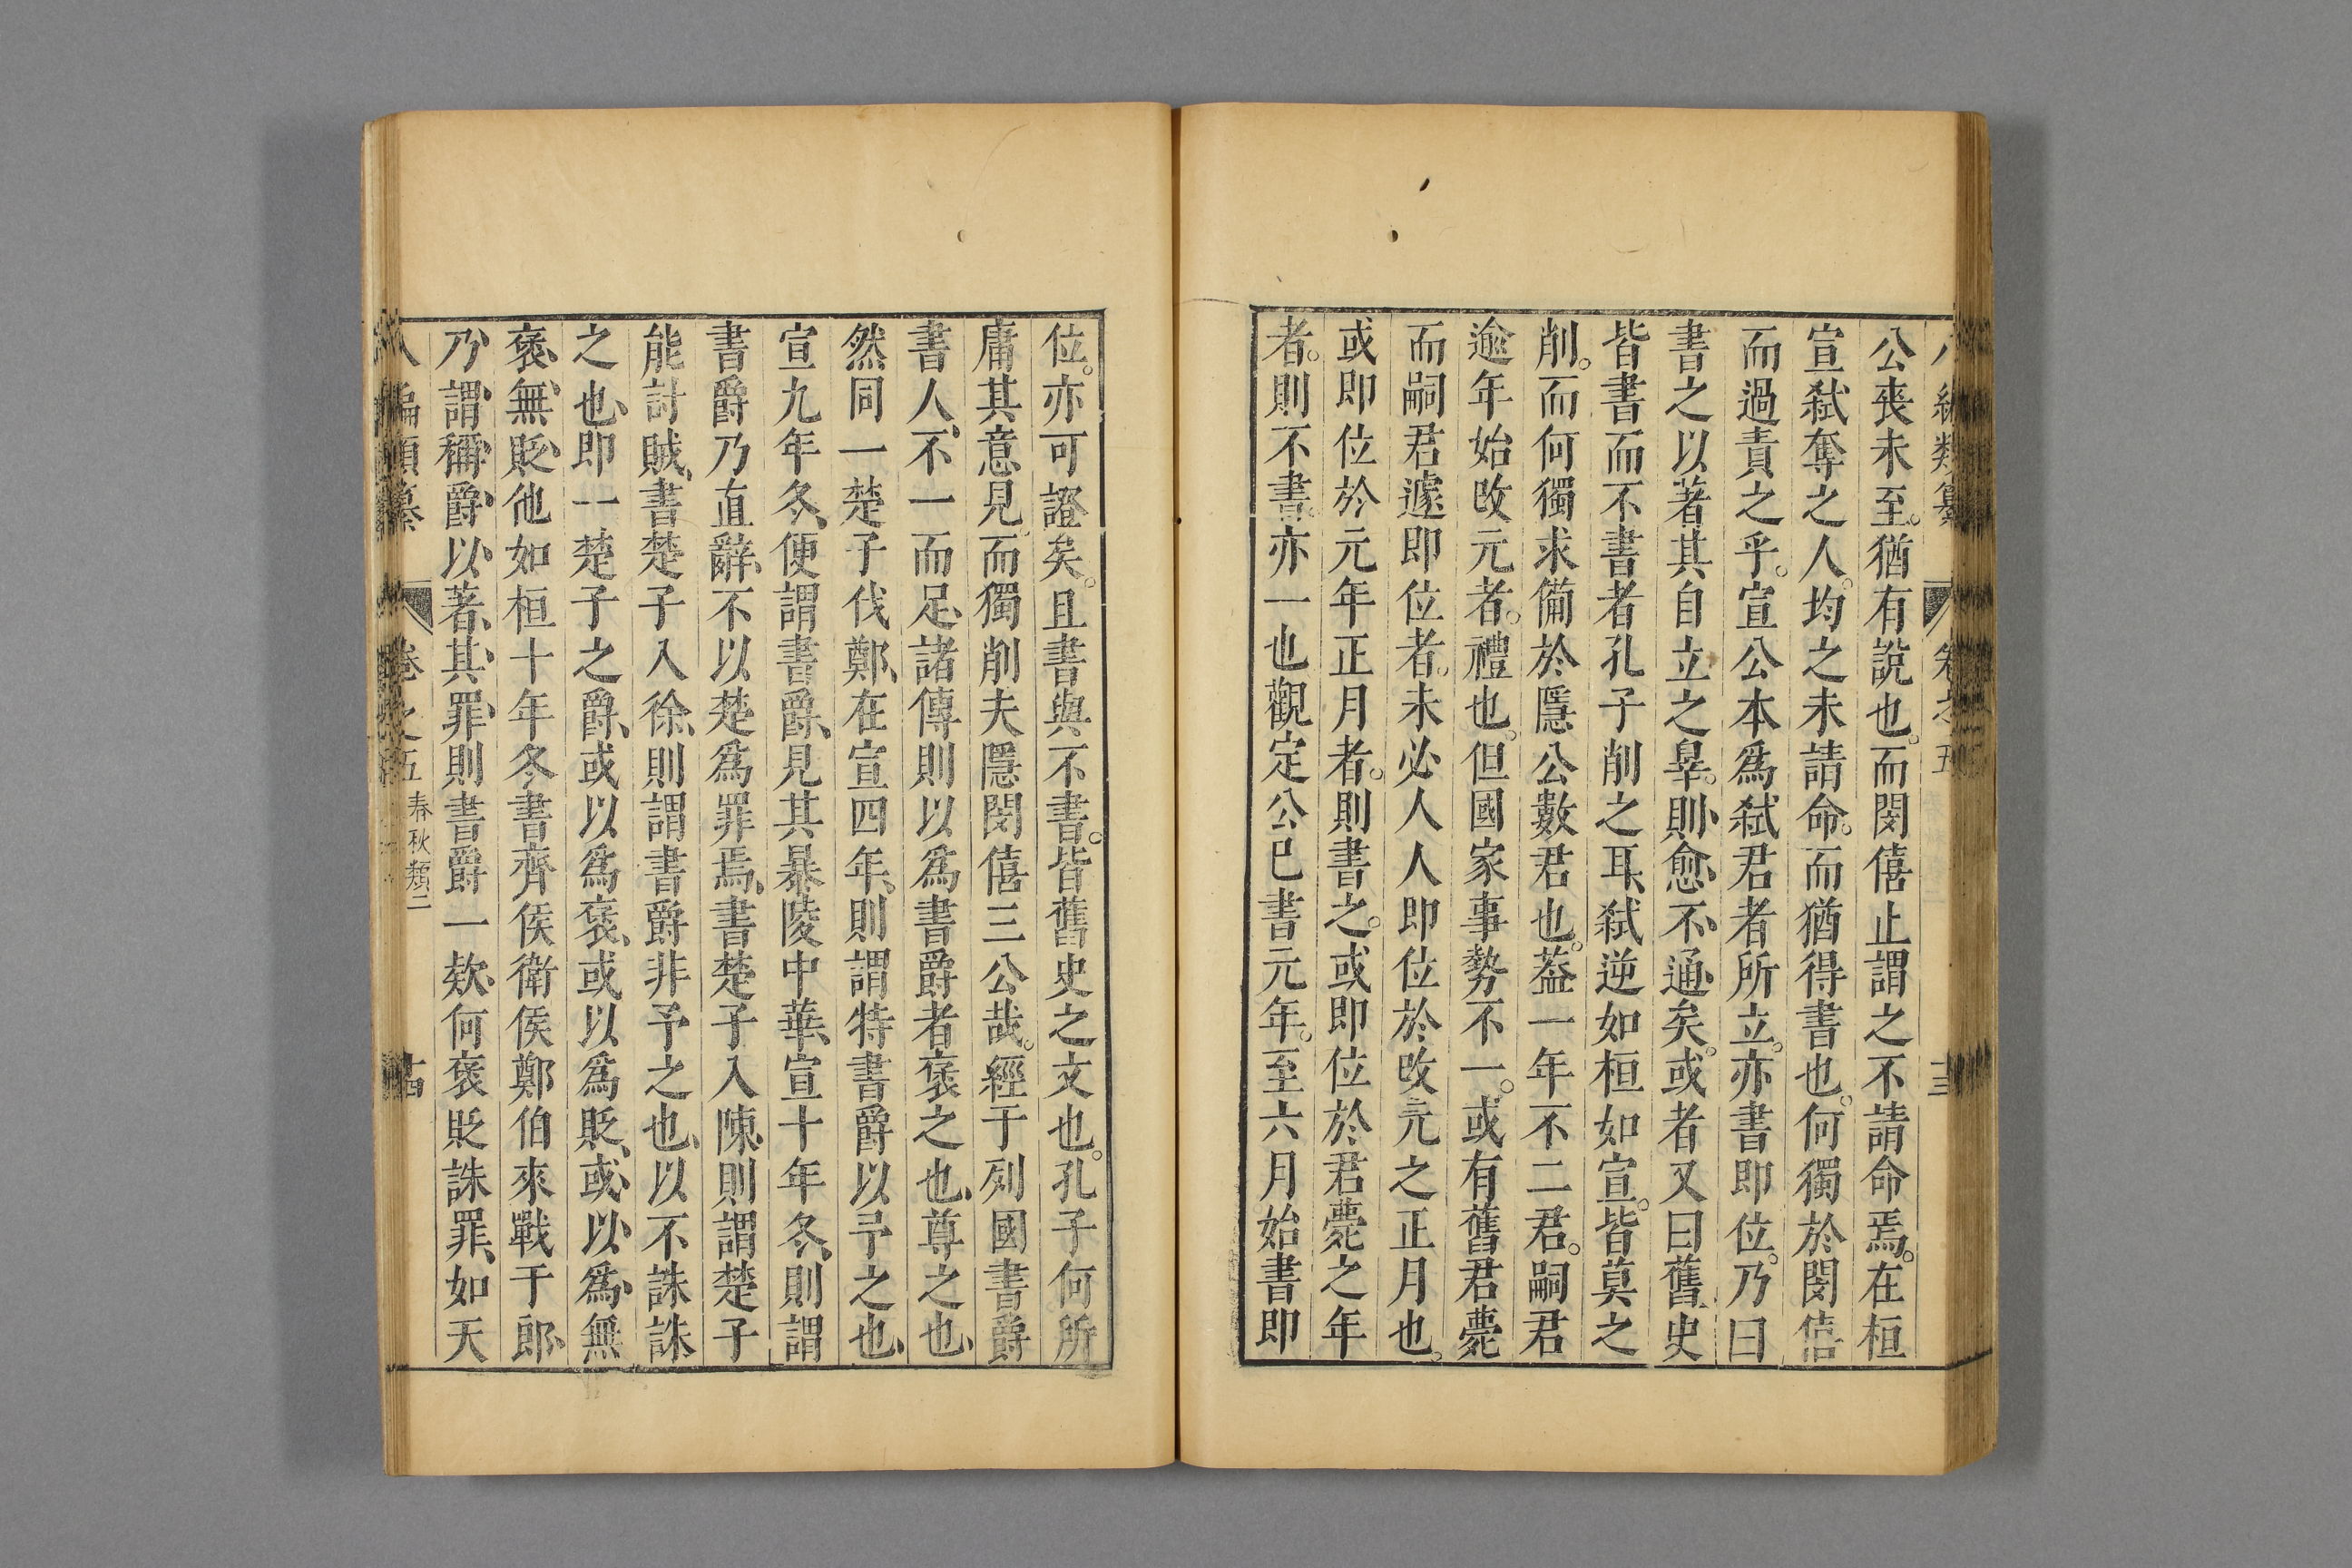 八編類纂 卷之五 十三
公喪未至。猶有說也。而閔僖止謂之不請命焉。在桓
宣弑奪之人。均之未請命。而猶得書也。何獨於閔僖
而過責之乎。宣公本爲弑君者所立。亦書即位。乃曰
書之以著其自立之辠。則愈不通矣。或者又曰舊史
皆書而不書者孔子削之耳、弑逆如桓如宣。皆莫之
削。而何獨求備於隱公數君也。葢一年不二君。嗣君
逾年始改元者。禮也。但國家事勢不一。或有舊君薨
而嗣君遽即位者。未必人人即位於改元之正月也。
或即位於元年正月者。則書之。或即位於君薨之年
者。則不書亦一也觀定公巳書元年。至六月始書即
位。亦可證矣。且書與不書。皆舊史之文也。孔子何所
庸其意見而獨削夫隱閔僖三公哉。經于列國書爵
書人、不一而足、諸傳則以爲書爵者褒之也、尊之也、
然同一楚子伐鄭、在宣四年、則謂特書爵以予之也、
宣九年冬、便謂書爵、見其暴陵中華、宣十年冬、則謂
書爵乃直辭、不以楚爲罪焉、書楚子入陳、則謂楚子
能討賊、書楚子入徐、則謂書爵非予之也、以不誅誅
之也、即一楚子之爵、或以爲褒、或以爲貶、或以爲無
褒、無貶、他如桓十年冬書齊侯衛侯鄭伯來戰于郎、
乃謂稱爵以著其罪、則書爵一欵、何褒貶誅罪、如天
八編類纂 卷之五 春秋類二 十四